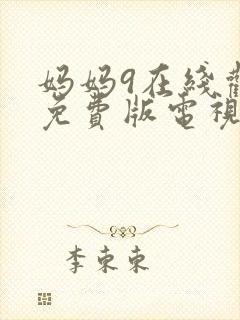 妈妈9在綫觀
免費版電視
李東東